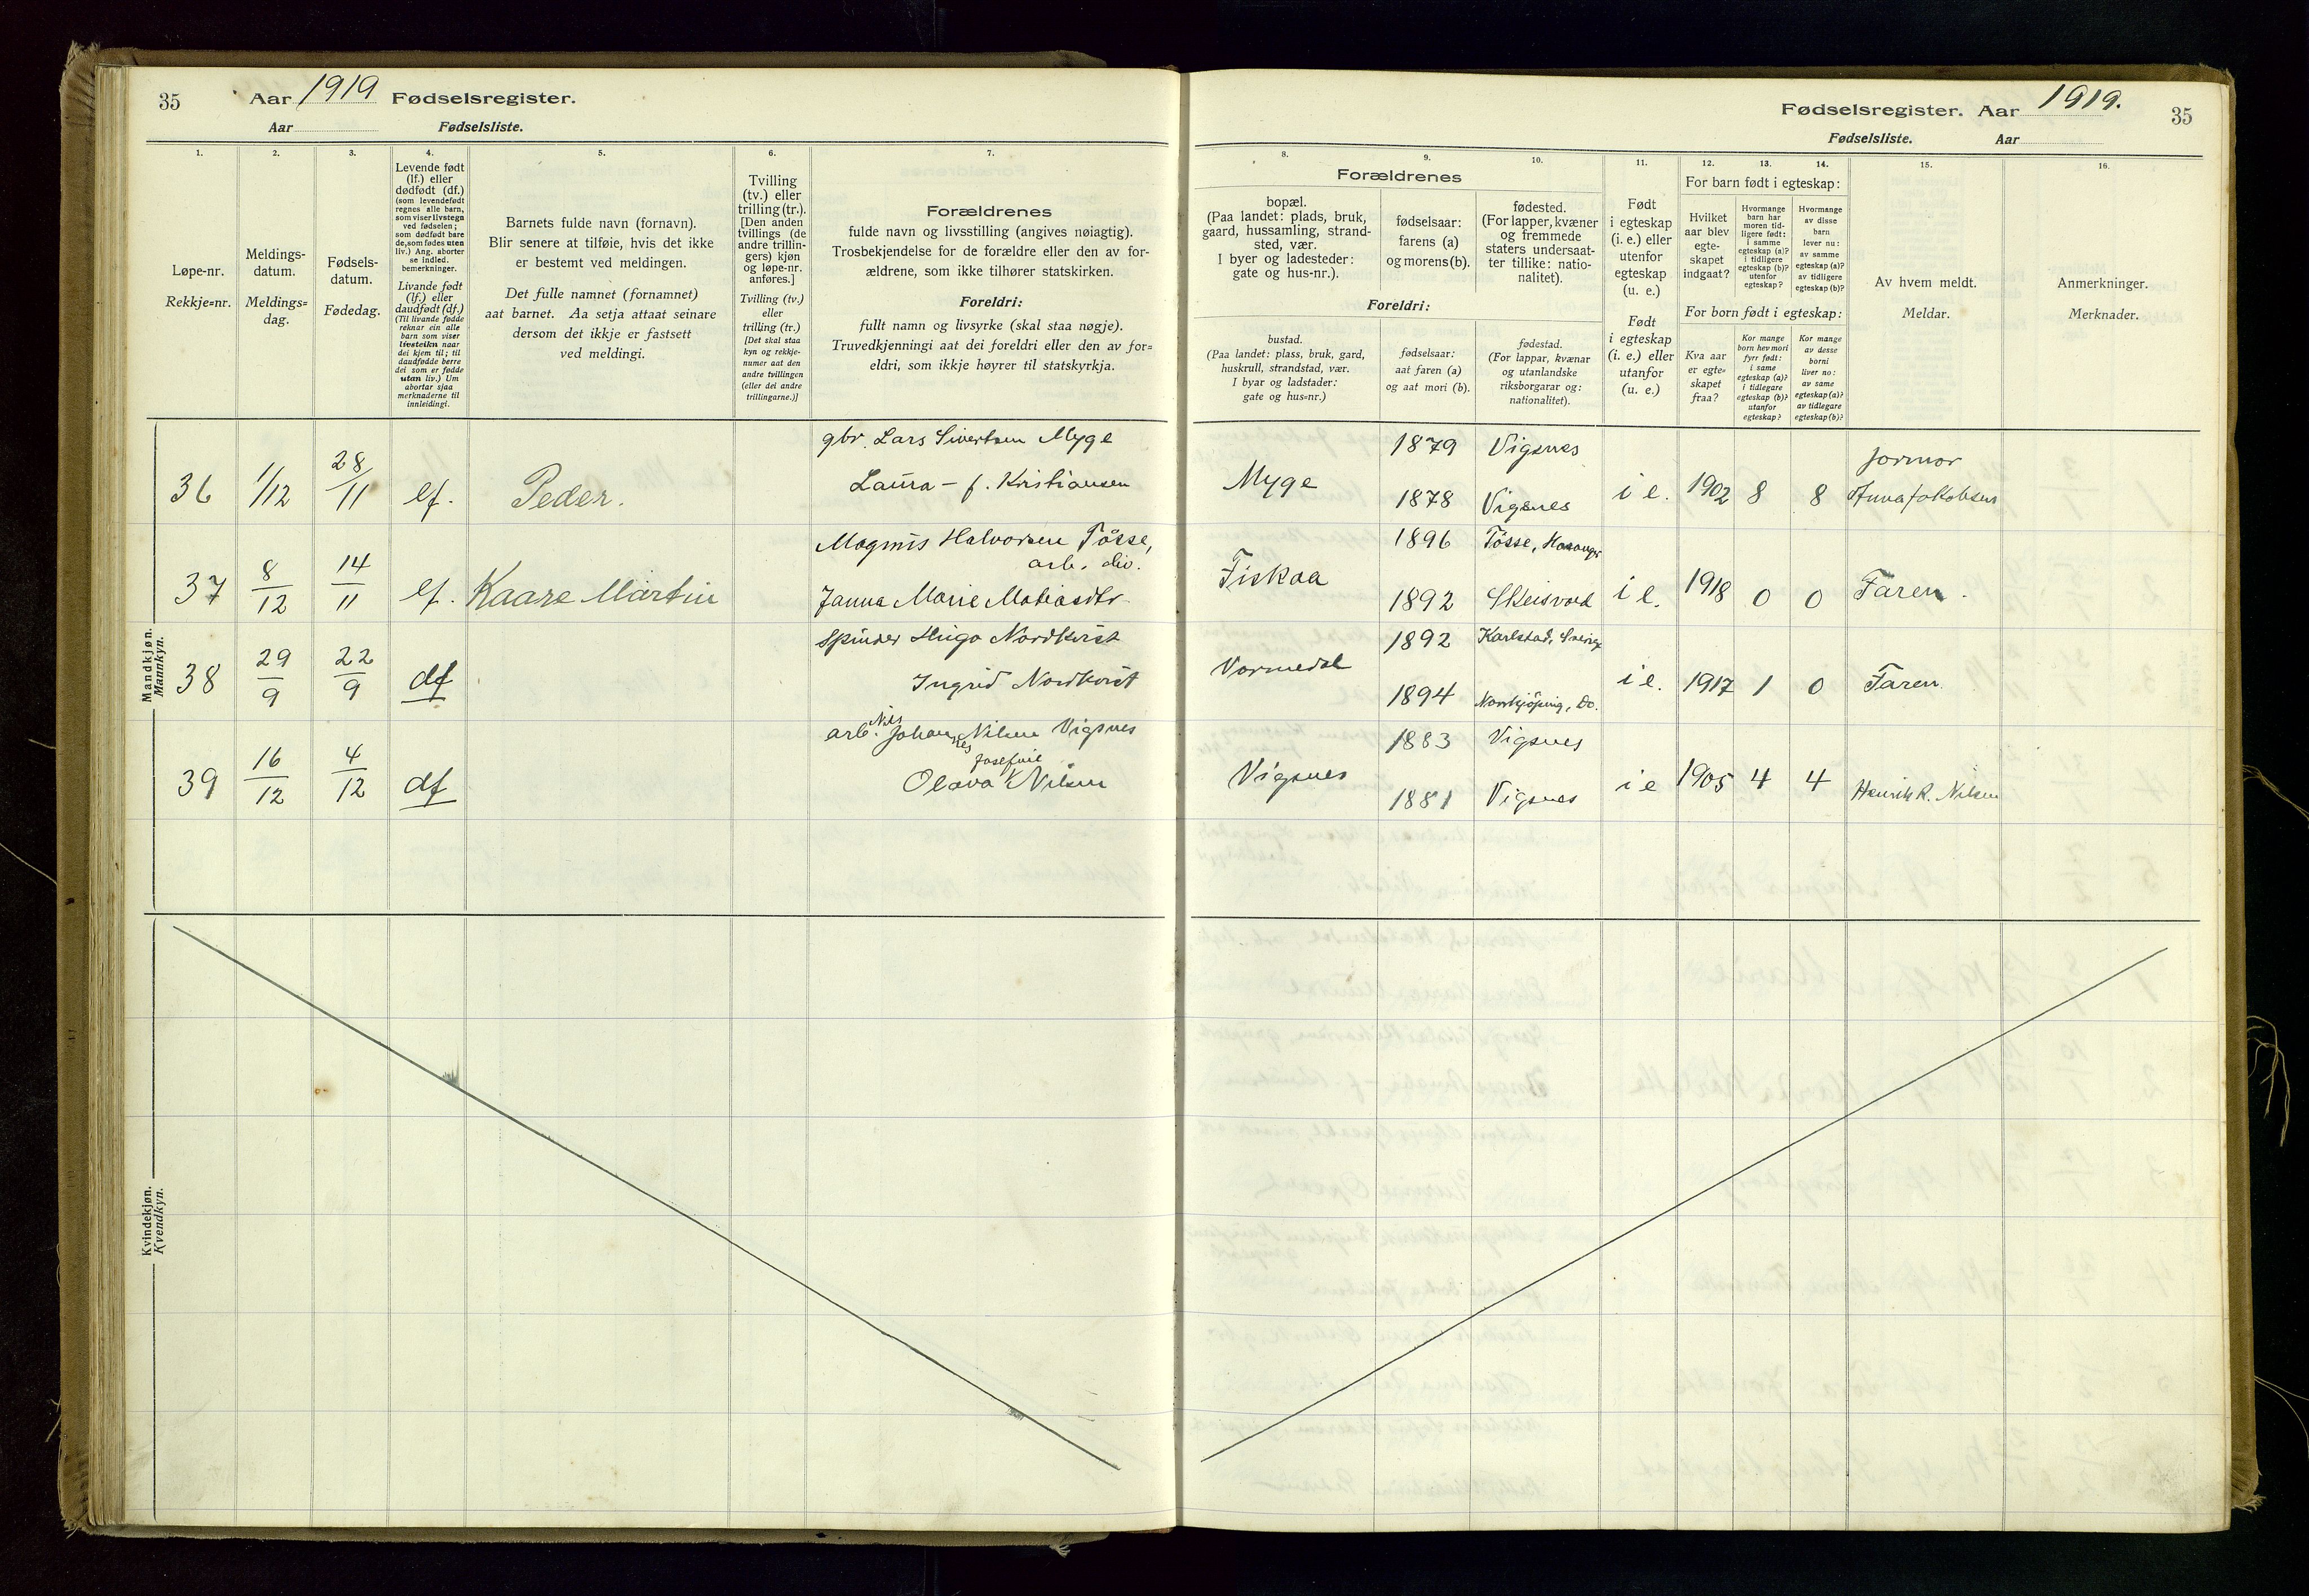 35
Aar 1919 Fødselsregister.
Aar Fødselsliste.
1.
2.
3.
4.
5.
6.
7.
Løpe-nr.
Rekkje=nr.
Meldings-
datum.
Meldings=
dag.
Fødsels-
datum.
Fødedag.
Levende født
(lf.) eller
dødfødt (df.)
(som levendefødt
regnes alle barn,
som viser livstegn
ved fødselen;
som dødfødt bare
de, som fødes uten
liv.) Ang. aborter
se indled.
bemerkninger.
Livande født
(lf.) eller
daudfødt (df.)
(Til livande fødde
reknar ein alle
barn som viser
livsteikn naar
dei kjem til; til
daudfødde berre
dei som er fødde
utan liv.) Um
abortar sjaa
merknaderne til
innleidingi.
Barnets fulde navn (fornavn).
Blir senere at tilføie, hvis det ikke
er bestemt ved meldingen.
Det fulle namnet (fornamnet)
aat barnet. Aa setja attaat seinare
dersom det ikkje er fastsett
ved meldingi.
Tvilling
(tv.) eller
trilling (tr.).
[Den anden
tvillings (de
andre trillin-
gers) kjøn
og løpe-nr.
anføres.]
Tvilling (tv.)
eller
trilling (tr.)
[Det skal staa
kyn og rekkje-
numer aat den
andre tvillingen
(eller dei andre
trillingarne.)]
Forældrenes
fulde navn og livsstilling (angives nøiagtig).
Trosbekjendelse for de forældre eller den av for-
ældrene, som ikke tilhører statskirken.
Foreldri:
fullt namn og livsyrke (skal staa nøgje).
Truvedkjenningi aat dei foreldri eller den av for=
eldri, som ikkje høyrer til statskyrkja.
Mandkjøn.
Mannkyn.
36 1/12 28/11 lf. Peder.
gbr. Lars Sivertsen Myge
Laura - f. Kristiansen
37 8/12 14/11 lf. Kaare Martin
Magnus Halvorsen Tösse,
arb. div.
Janna Marie Matiasdtr.
38 29/9 22/9 df
Spinder Hugo Nordkvist
Ingrid Nordkvist
39 16/12 4/12 df
Nils
arb. Johannes Nilsen Vigsnes
Josefine
Olava Nilsen
Kvindekjøn.
Kvendkyn.
Fødselsregister. Aar 1919. 35
Fødselsliste. Aar
8.
9.
10.
11.
12.
13.
14.
15.
16.
Forældrenes
bopæl.
(Paa landet: plads, bruk,
gaard, hussamling, strand-
sted, vær.
I byer og ladesteder:
gate og hus-nr.).
fødselsaar:
farens (a)
og morens (b).
fødested.
(For lapper, kvæner
og fremmede
staters undersaat-
ter tillike: natio-
nalitet).
Foreldri:
bustad.
(Paa landet: plass, bruk, gard,
huskrull, strandstad, vær.
I byar og ladstader:
gate og hus=nr.)
fødselsaar:
aat faren (a)
og aat mori (b).
fødestad.
(For lappar, kvænar
og utanlandske
riksborgarar og:
nationalitet).
Født
i egteskap
(i. e.) eller
utenfor
egteskap
(u. e.)
Født
i egteskap
(i. e.) eller
utanfor
(u. e.)
For barn født i egteskap:
Hvilket
aar blev
egte-
skapet
indgaat?
Hvormange
barn har
moren tid-
ligere født:
i samme
egteskap (a)?
i tidligere
egteskap (b)?
utenfor
egteskap?
Hvormange
av disse
barn
lever nu:
av samme
egteskap (a)?
av tidligere
egteskap (b)?
For born født i egteskap:
Kva aar
er egte=
skapet
fraa?
Kor mange
born hev mori
fyrr født:
i same
egteskap (a)?
i tidlegare
egteskap (b)?
utanfor
egteskap?
Kor mange
av desse
borni
liver no:
av same
egteskap (a)?
av tidlegare
egteskap (b)?
Av hvem meldt.
Meldar.
Anmerkninger.
Merknader.
Myge 1879 Vigsnes
1878 Vigsnes
i e. 1902 8 8 formor
Anna Jakobsen
Fiskaa 1896 Tösse,
1892 Skeisvold
i e. 1918 0 0 Faren.
Vormedal 1892 Karlstad, Sverige
1894 Norrkjöping, Do.
i e. 1917 1 0 Faren
Vigsnes 1883 Vigsnes
1881 Vigsnes
i e 1905 4 4 Henrik R. Nilsen